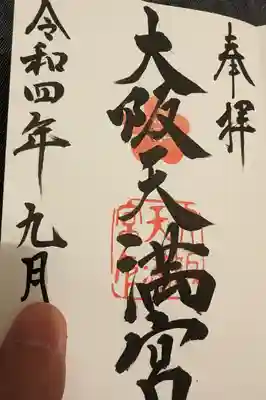 奉拝
大阪天満宮
令和四年九月